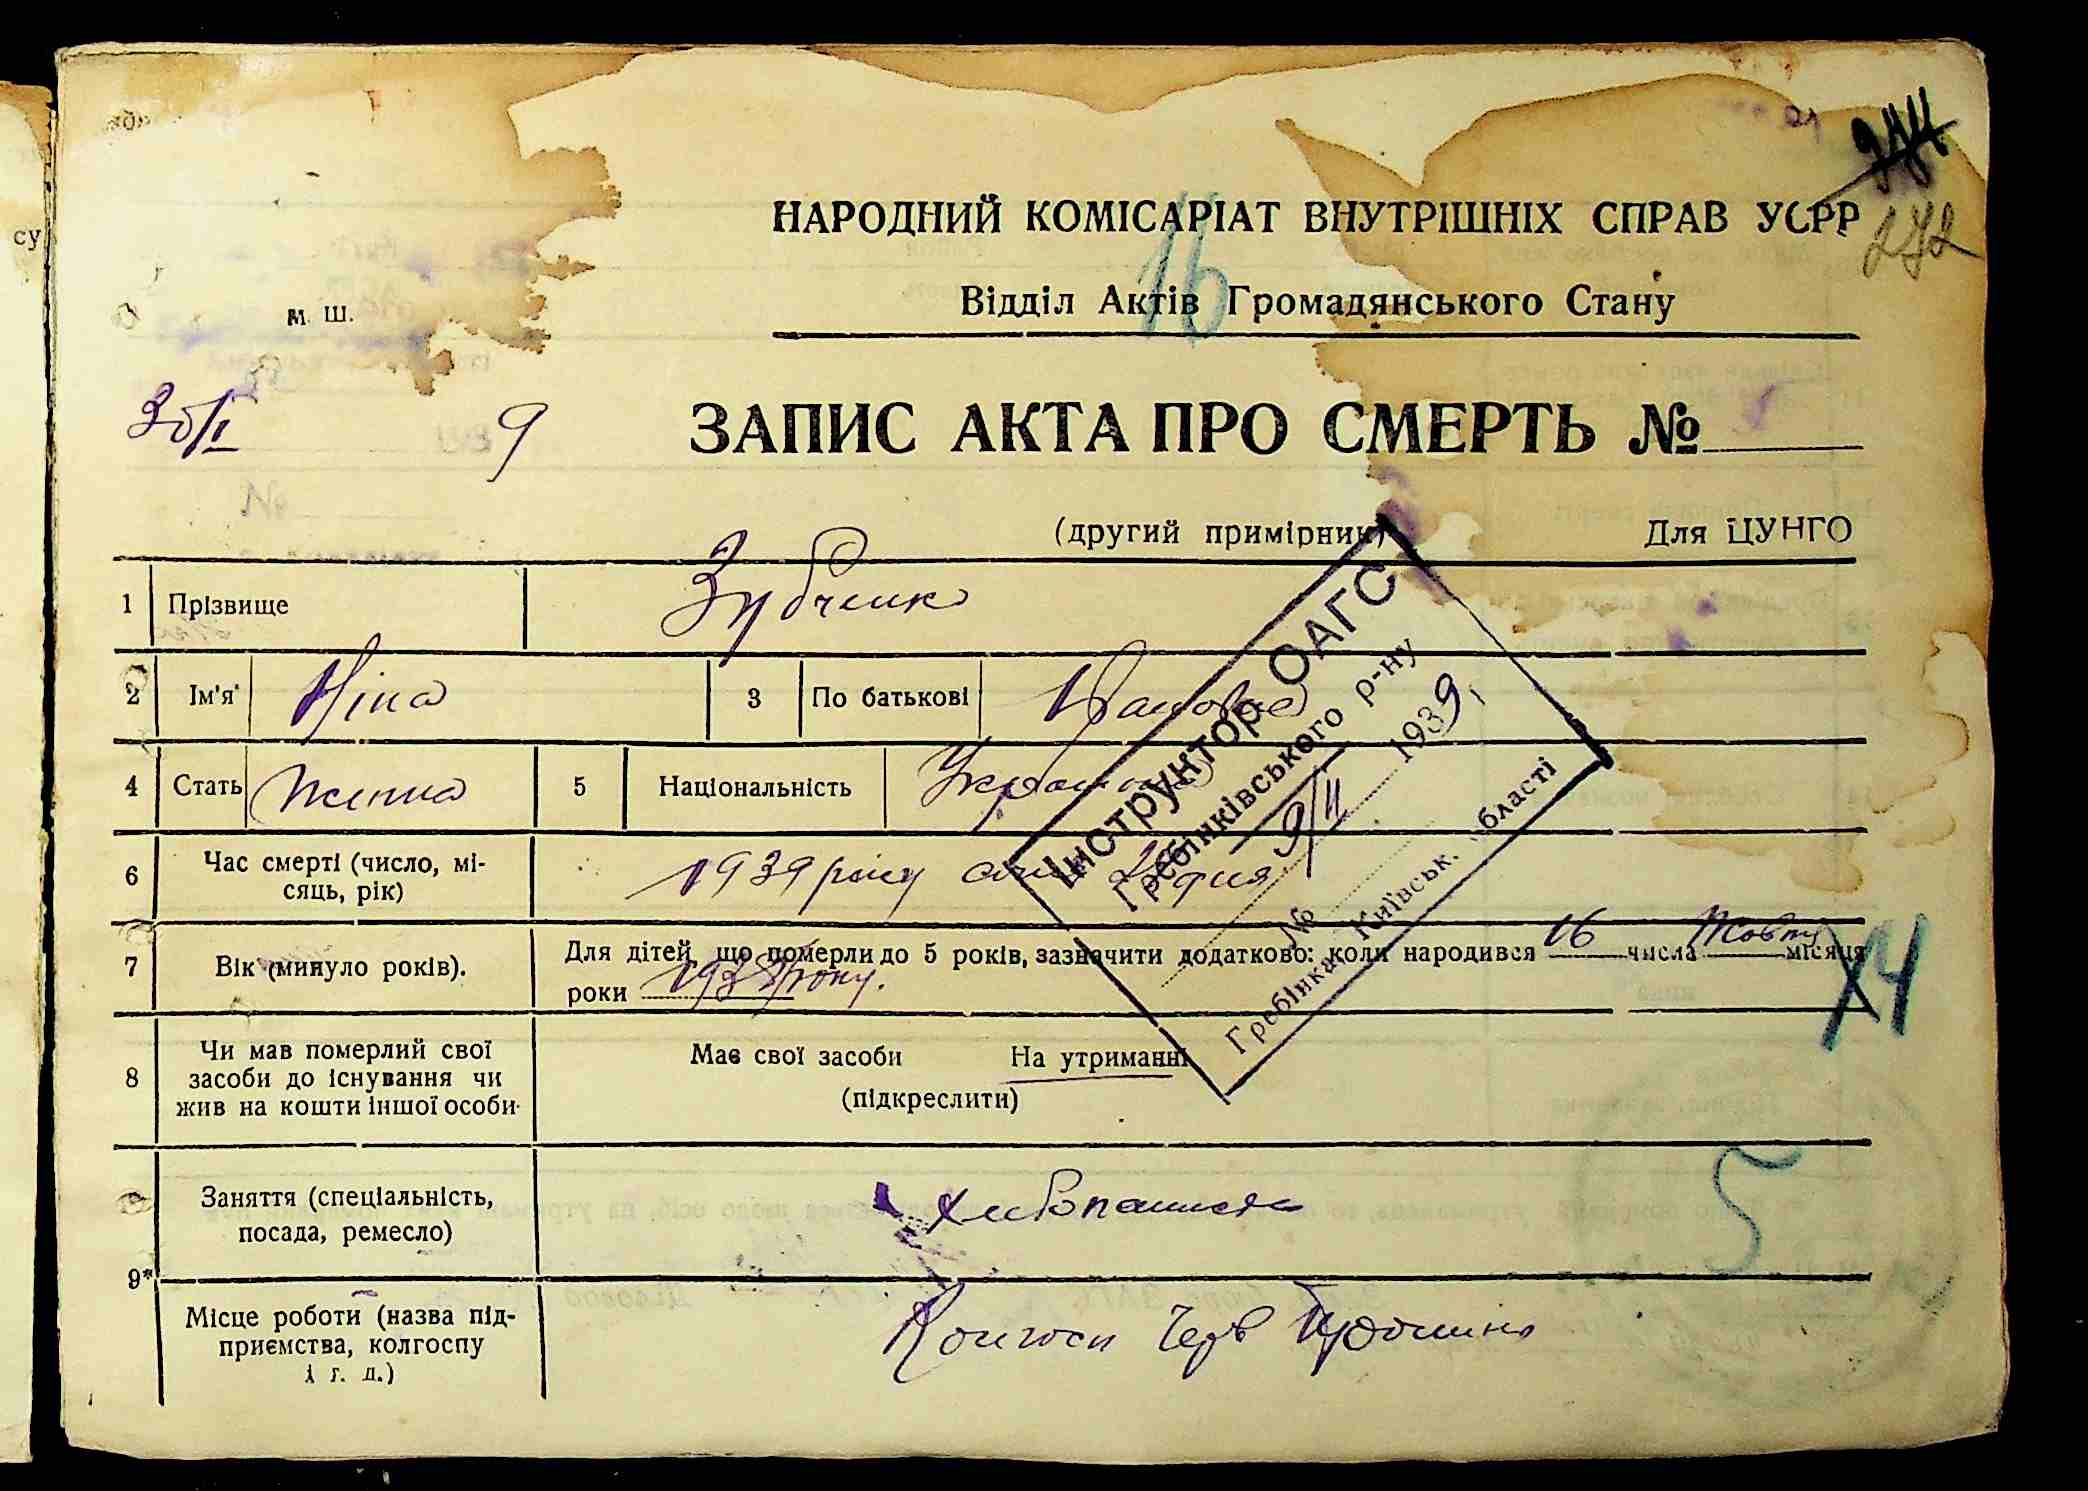 су
244
272
16
НАРОДНИЙ КОМІСАРІАТ ВНУТРІШНІХ СПРАВ УСРР
м. ш.
Відділ Актів Громадянського Стану
30/I 9
ЗАПИС АКТА ПРО СМЕРТЬ №
(другий примірник)
Для ЦУНГО
1 Прізвище Зубченко
2 Ім'я Ніна 3 По батькові Івановна
4 Стать Жіноча 5 Національність Українка
6 Час смерті (число, мі-
сяць, рік)
1939 року січня дня
7 Вік (минуло років).
Для дітей, що померли до 5 років, зазначити додатково: коли народився 16 числа Жовтн місяця
роки 1938 року.
14
8 Чи мав померлий свої
засоби до існування чи
жив на кошти іншої особи.
Має свої засоби На утриманні
(підкреслити)
Заняття (спеціальність,
посада, ремесло)
5
9*
Місце роботи (назва під-
приємства, колгоспу
і г. д.)
Колгосп Черв
Інструктор ОАГС
Гребінківського р-ну
№ 9/II 1939
Гребінка, Київськ. області